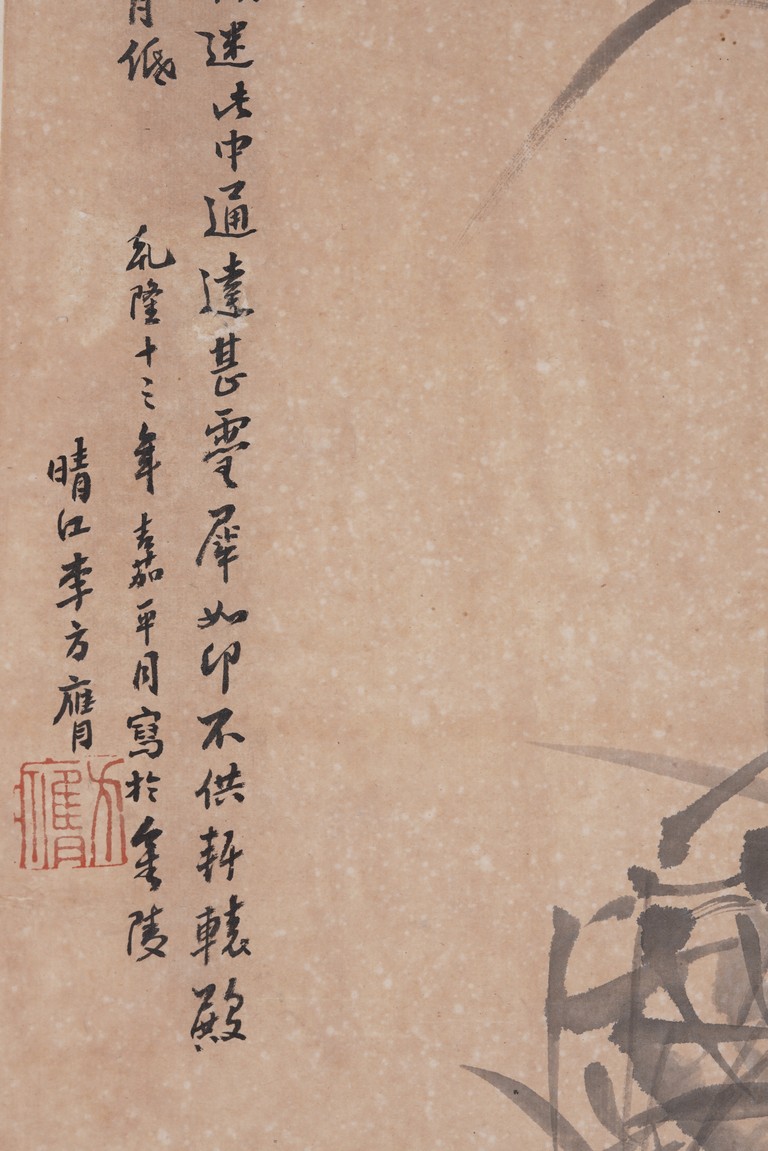 迷此中通達甚靈犀如印不供軒轅殿
月低
乾隆十三年嘉平月寫於金陵
晴江李方膺
方膺